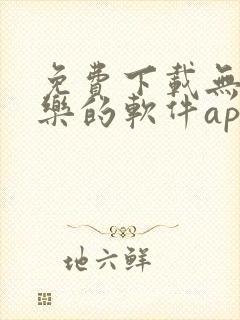 免費下載無
樂的軟件ap
地六鮮